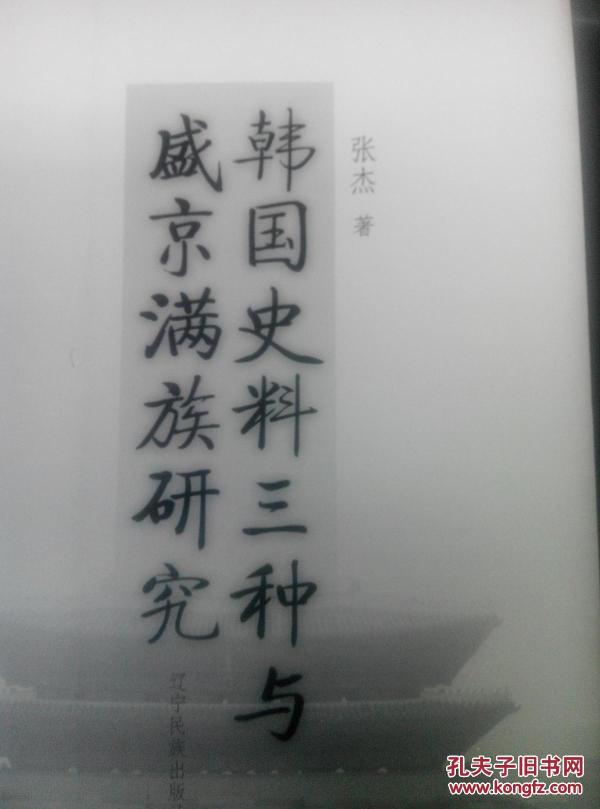 张杰 著
韩国史料三种与
盛京满族研究
辽宁民族出版
孔夫子旧书网
www.kongfz.com